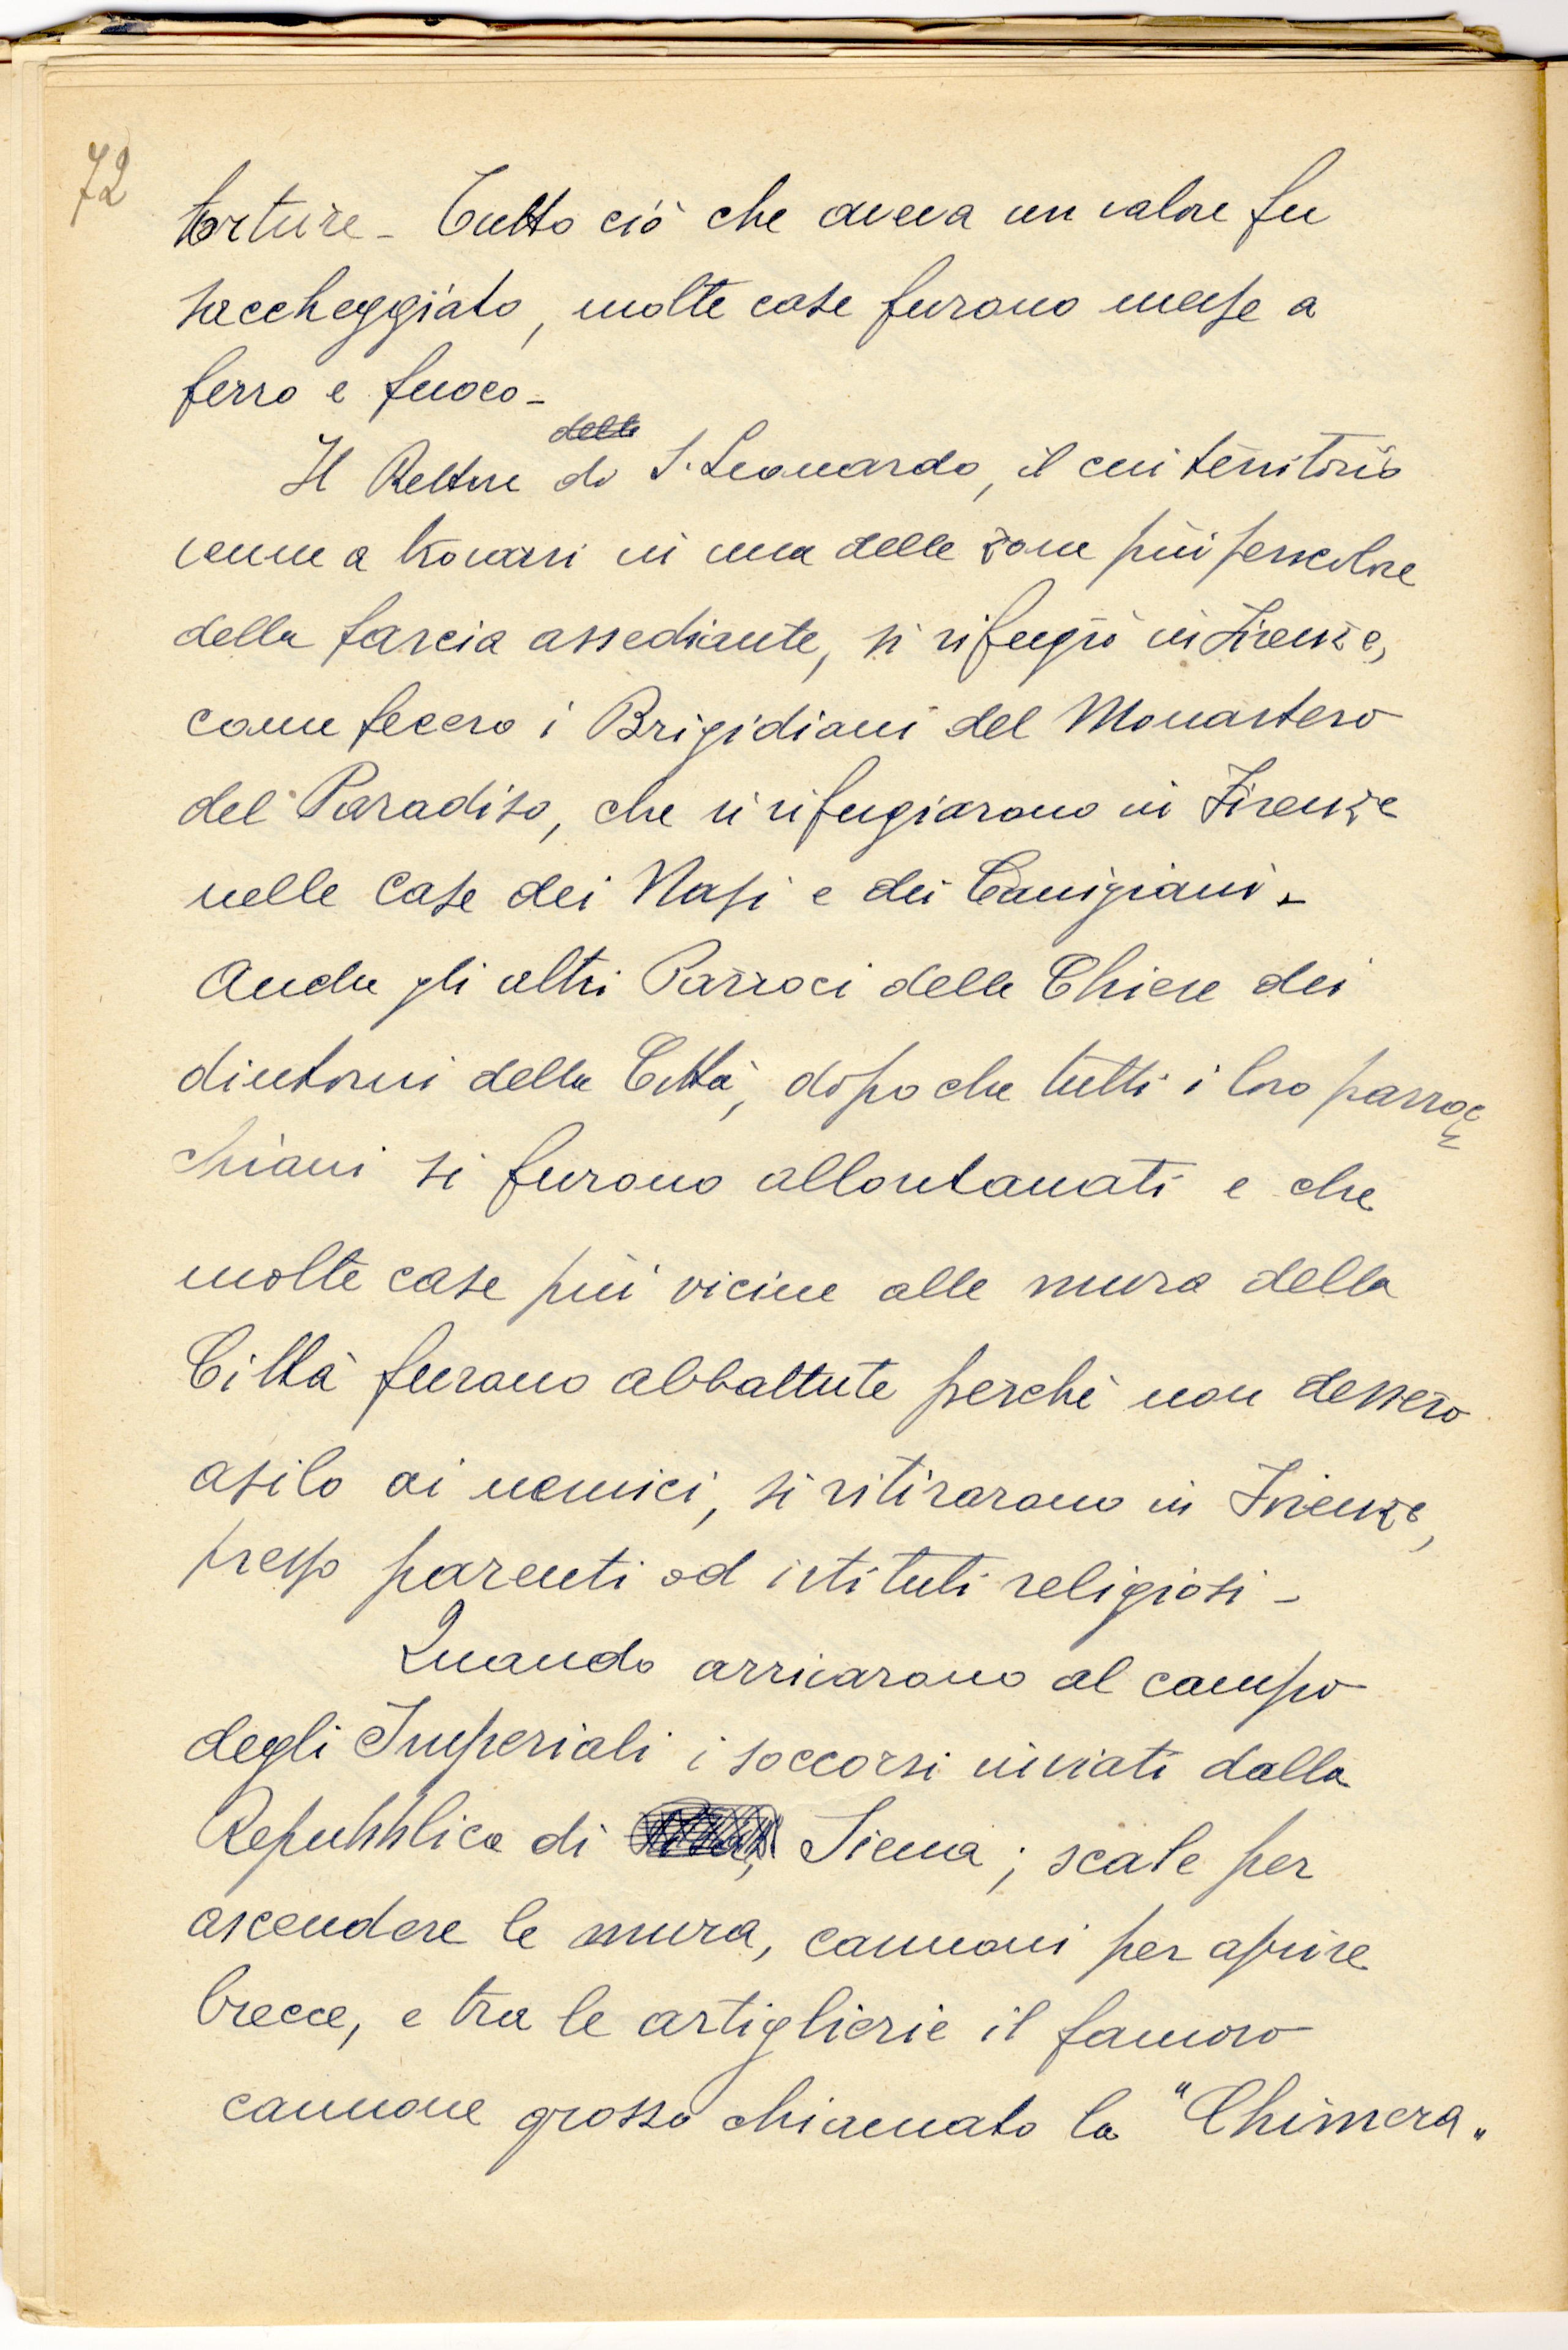 72
torture - Tutto ciò che aveva un valore fu
saccheggiato, molte case furono messe a
ferro e fuoco -
delle
Il Rettore di S. Leonardo, il cui territorio
venne a trovarsi in una delle zone più pericolose
della fascia assediante, si rifugiò in Firenze,
come fecero i Brigidiani del Monastero
del Paradiso, che si rifugiarono in Firenze
nelle Case dei Nasi e dei Canigiani -
Anche gli altri Parroci delle Chiese dei
dintorni della Città, dopo che tutti i loro parroc=
chiani si furono allontanati e che
molte case più vicine alle mura della
Città furono abbattute perchè non dessero
asilo ai nemici, si ritirarono in Firenze,
presso parenti od istituti religiosi -
Quando arrivarono al campo
degli Imperiali i soccorsi inviati dalla
Repubblica di Siena ; scale per
ascendere le mura, cannoni per aprire
brecce, e tra le artiglierie il famoso
cannone grosso chiamato la "Chimera„